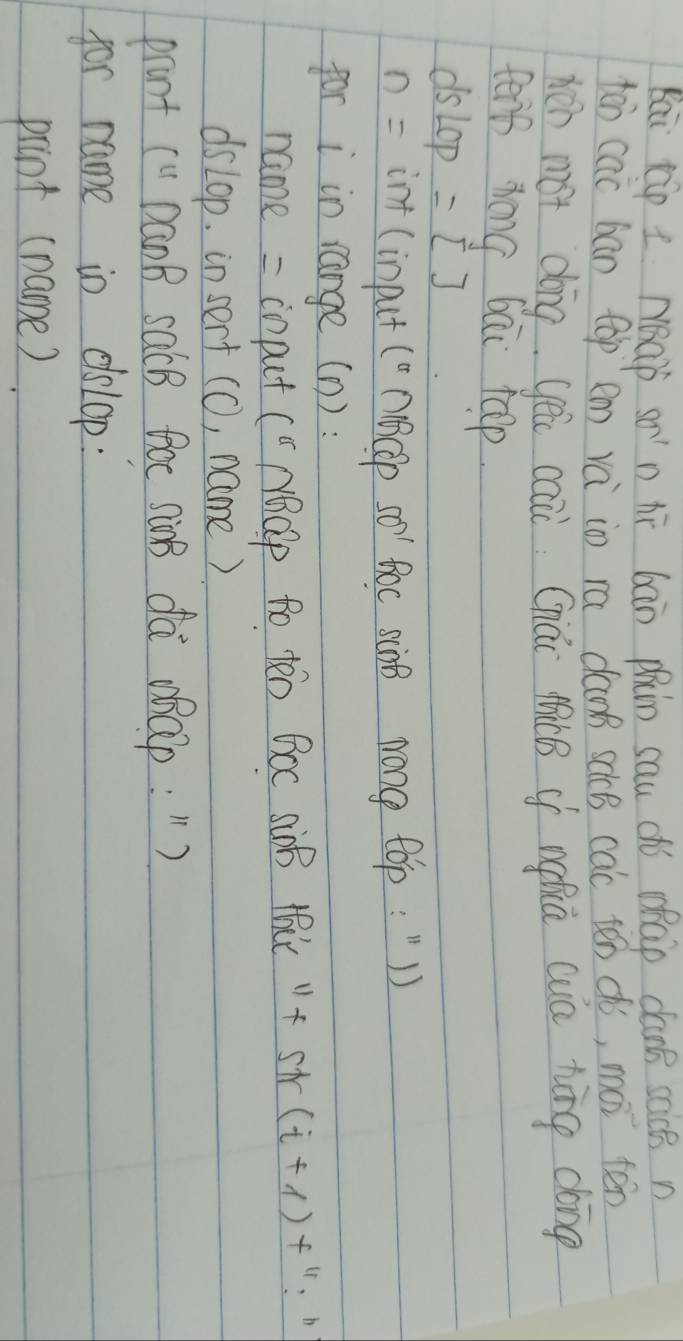 Bài tập 1. Nhập số n từ bàn phím sau đó nhập danh sách n
tên các bạn lớp em và in ra danh sách các tên đó, mỗi tên
trên một dòng. Yêu cầu: Giải thích ý nghĩa của từng dòng
lệnh trong bài tập.
dsLop = []
n = int(input("Nhập số học sinh trong lớp:"))
for i in range (n):
name = input("Nhập họ tên học sinh thứ "+ str(i+1)+":"
dsLop.insert(0, name)
print ("Danh sách học sinh đã nhập:")
for name in dsLop:
print (name)